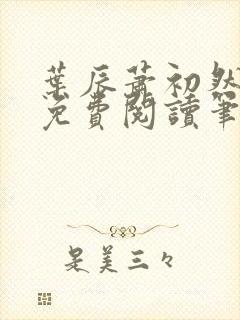 葉辰蕭初然
免費閱讀筆
是美三々